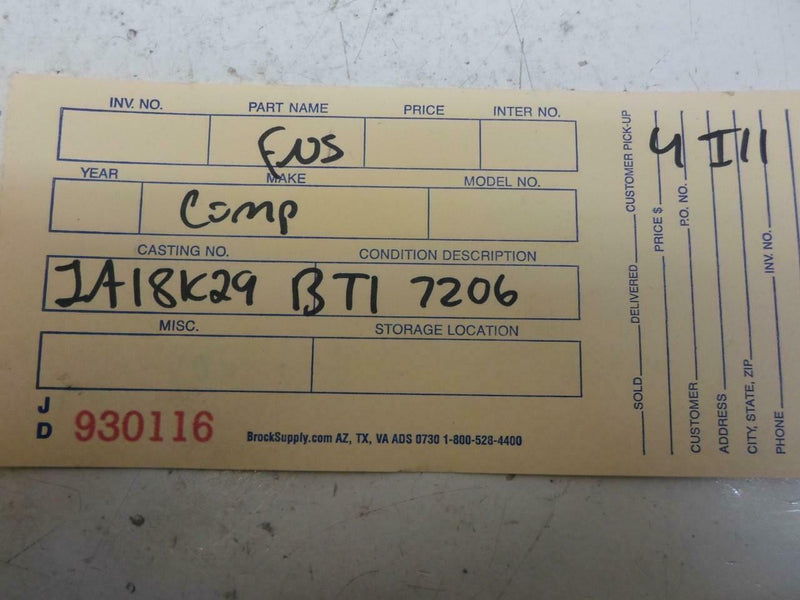 INV. NO. PART NAME PRICE INTER NO.
EOS
YEAR MAKE MODEL NO.
Comp
CASTING NO. CONDITION DESCRIPTION
1A18K29 BTI 7206
MISC. STORAGE LOCATION
J D 930116
BrockSupply.com AZ, TX, VA ADS 0730 1-800-528-4400
SOLD DELIVERED CUSTOMER PICK-UP
PRICE $
CUSTOMER P.O. NO.
ADDRESS
CITY, STATE, ZIP
PHONE INV. NO.
4 I11